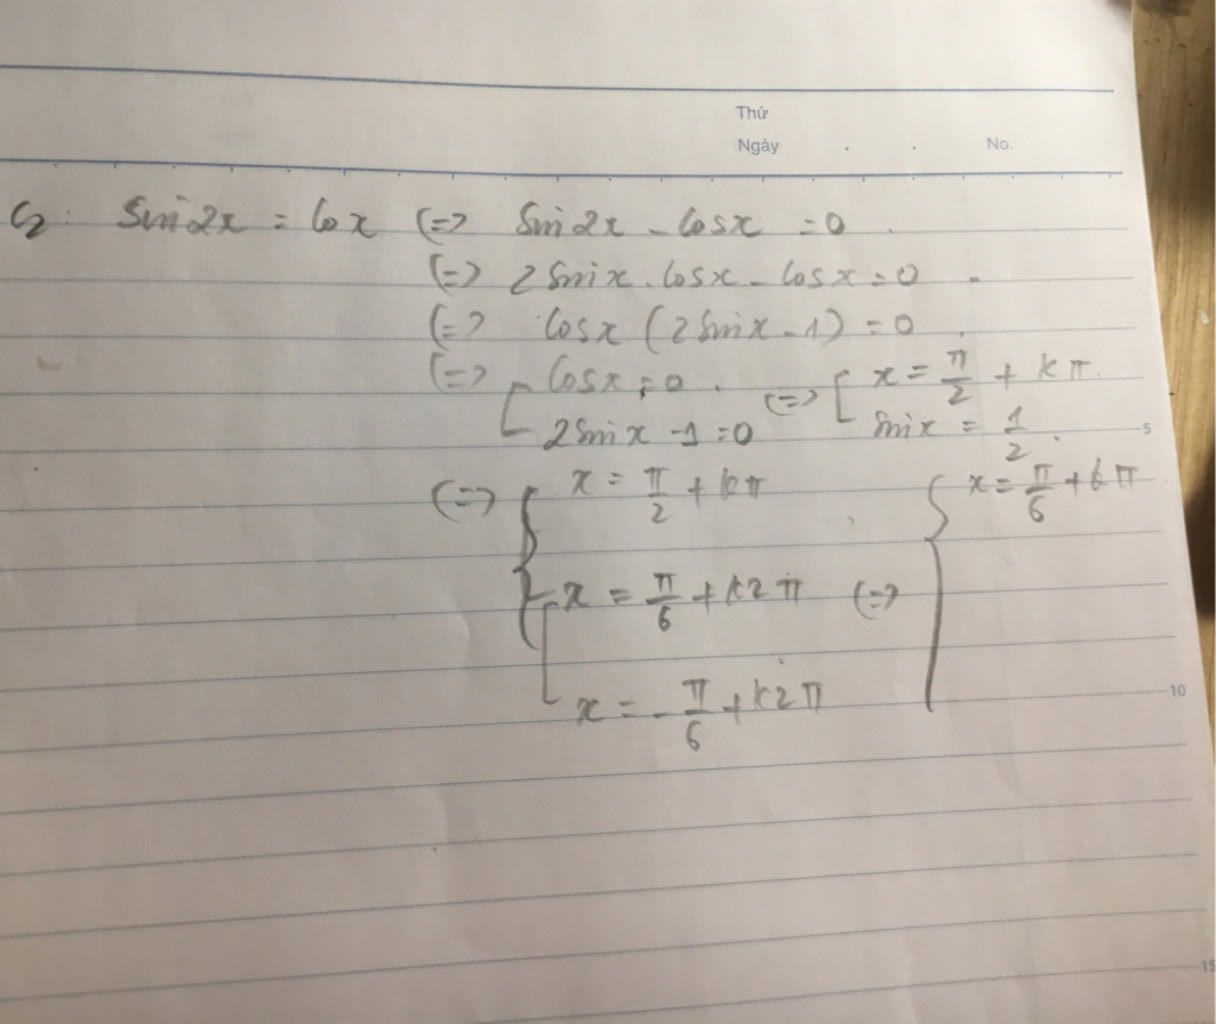 Thứ
Ngày . . No.
C2: sin2x = cosx (=> sin2x - cosx = 0.
(=> 2sinx.cosx - cosx = 0
(=> cosx (2sinx - 1) = 0.
(=> [ cosx = 0. (=> [ x = π/2 + kπ.
2sinx - 1 = 0 sinx = 1/2. 5
(=> { x = π/2 + kπ { x = π/6 + kπ
[ x = π/6 + k2π (=>
x = -π/6 + k2π 10
15